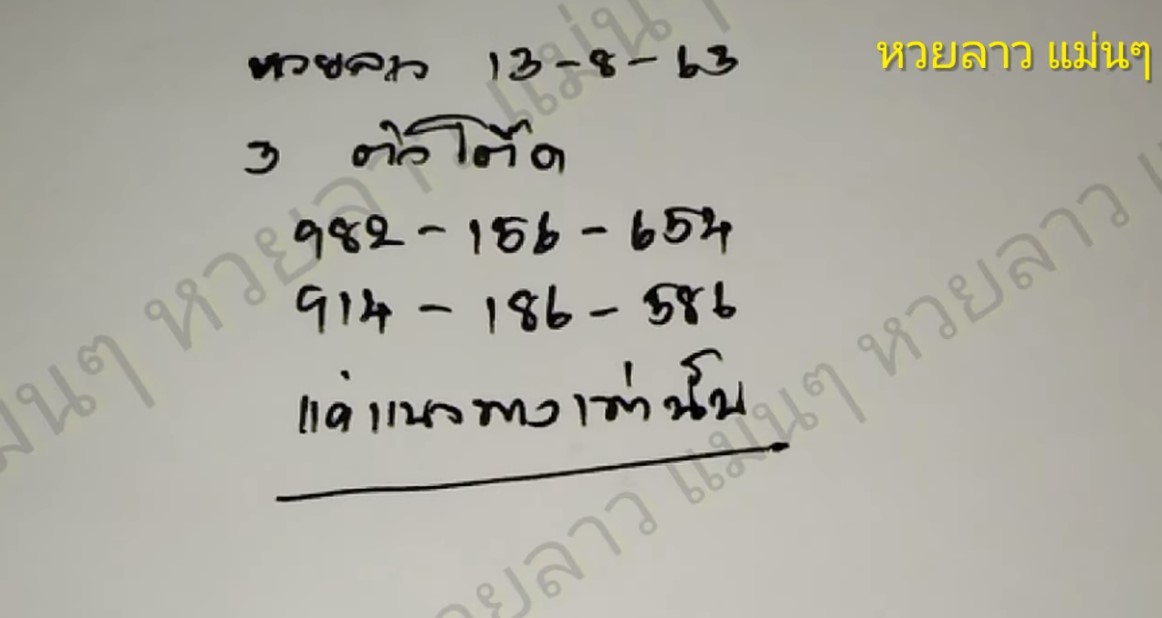 หวยลาว 13-8-63
หวยลาว แม่นๆ
3 ตัวโต๊ด
982-156-654
914-186-586
แค่แนวทางเท่านั้น
หวยลาว แม่นๆ
หวยลาว แม่นๆ
หวยลาว แม่นๆ